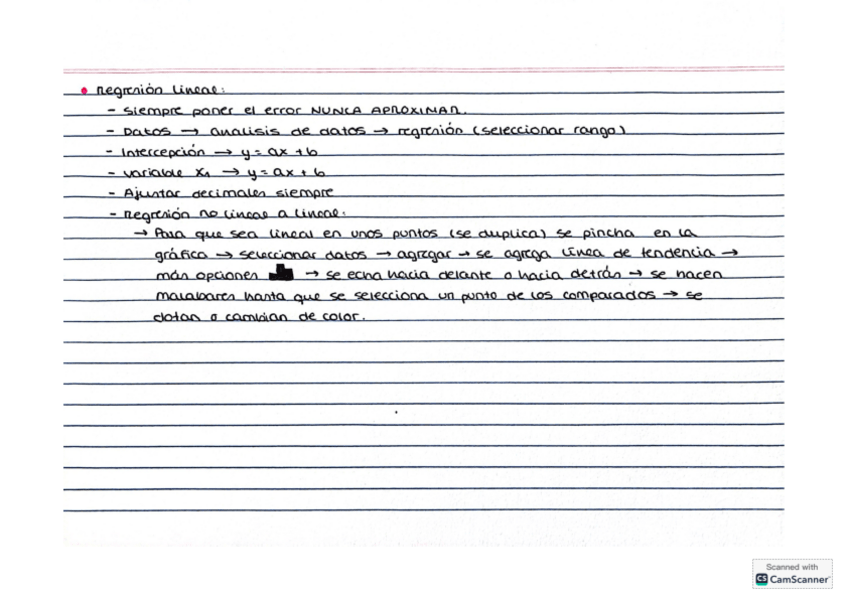 • Regresión Lineal:
- Siempre poner el error NUNCA APROXIMAR.
- Datos → analisis de datos → regresión (seleccionar rango)
- Intercepción → y = ax + b
- variable x1 → y = ax + b
- Ajustar decimales siempre
- Regresión no lineal a lineal:
→ Para que sea lineal en unos puntos (se duplica) se pincha en la
gráfica → seleccionar datos → agregar → se agrega línea de tendencia →
más opciones → se echa hacia delante o hacia detrás → se hacen
malabares hasta que se selecciona un punto de los comparados → se
clotan o cambian de color.
Scanned with
CS CamScanner